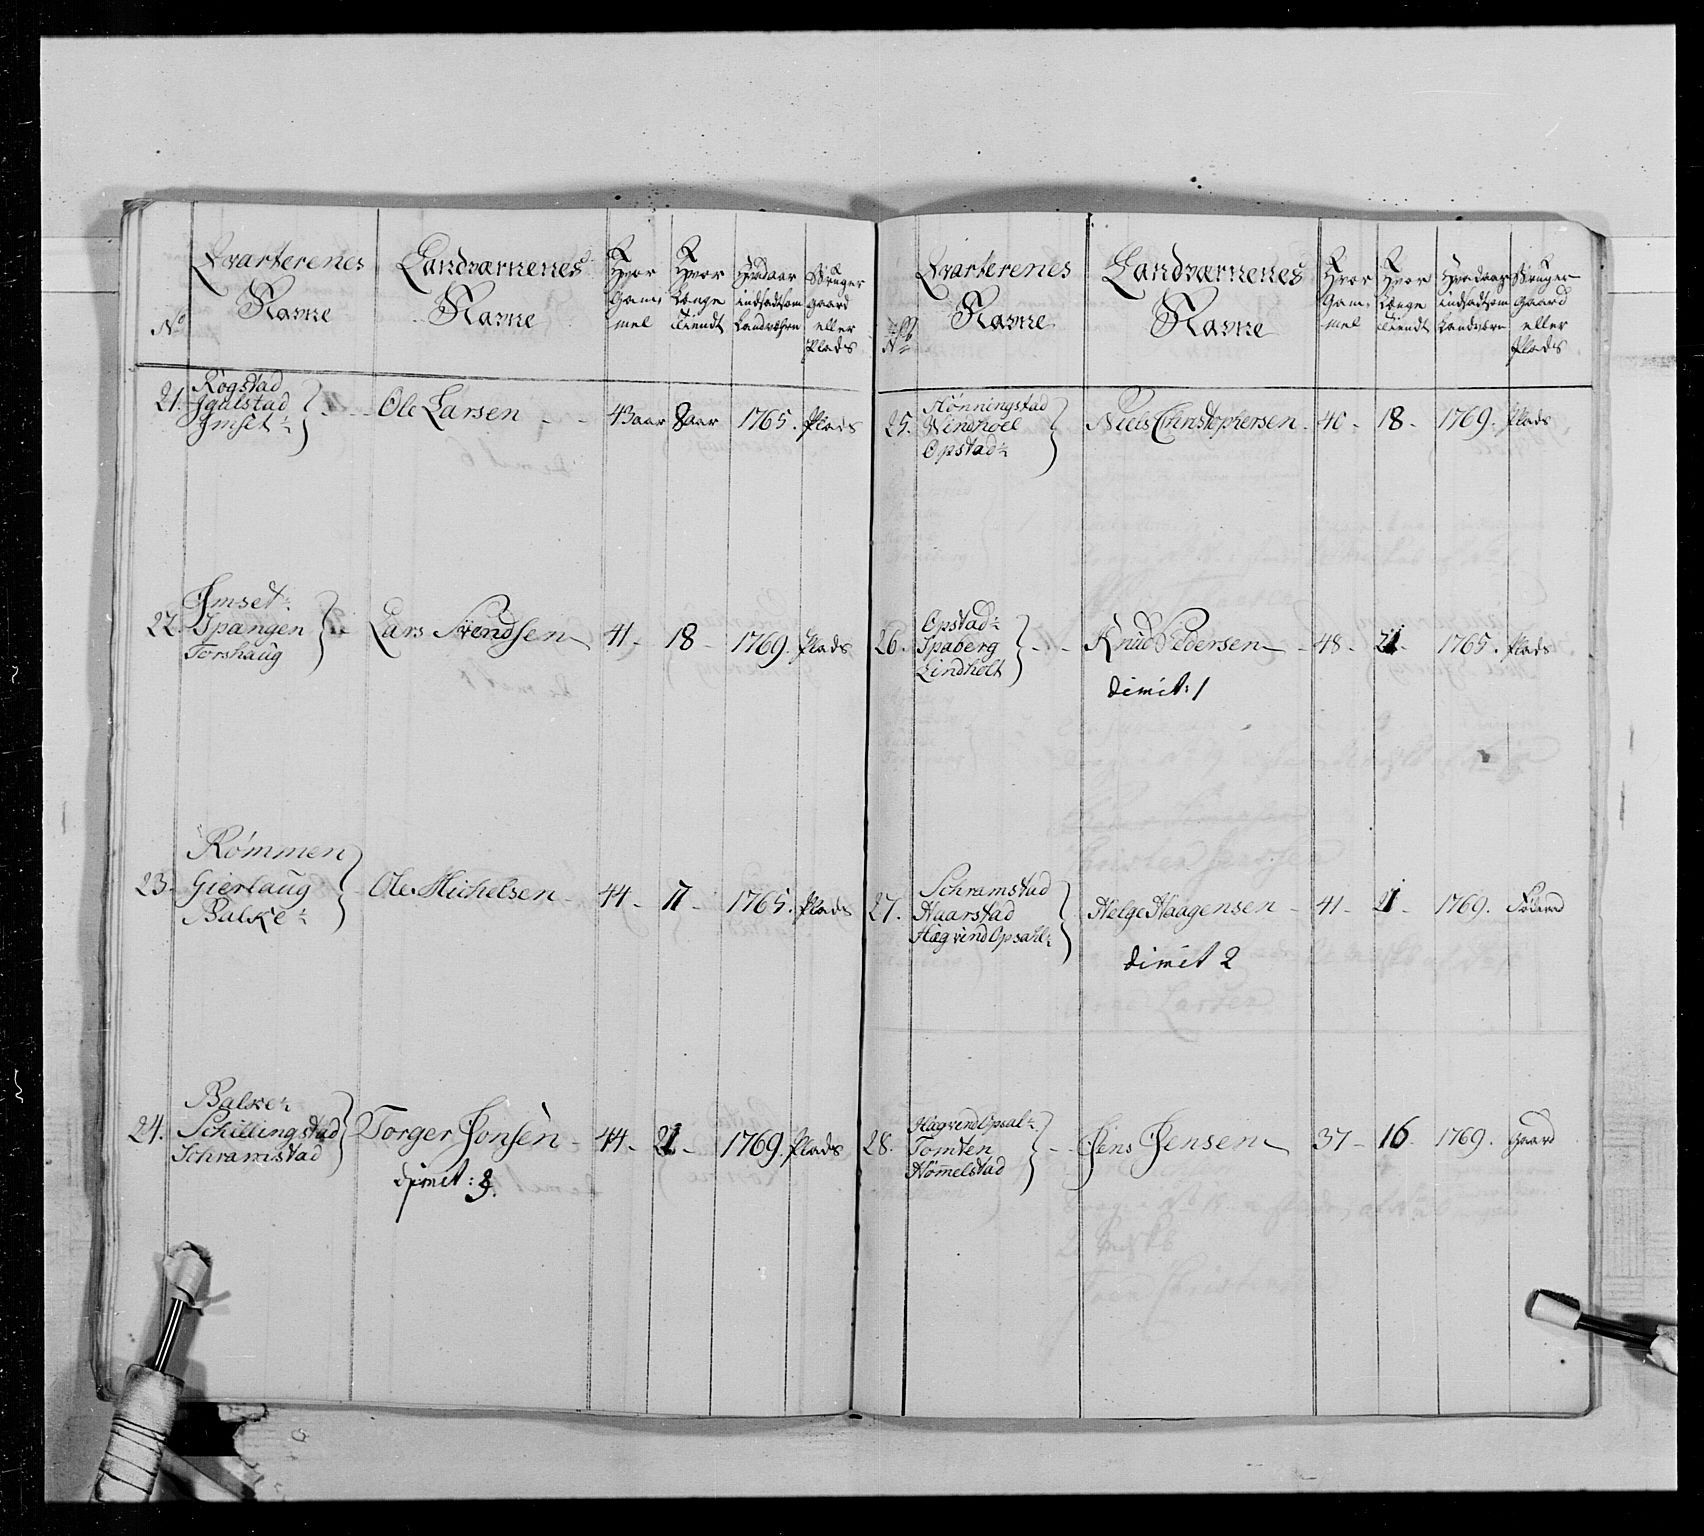 No
Qvarterenes Nafne
Landværnenes Nafne
Hvor Gammel
Hvor Længe Tiendt
Hvadaar indsadt som Landværn
Bruger gaard eller Plads
21. Rogstad
Igulstad
Imset
Ole Larsen - - 43 aar 8 aar 1765. Plads
22. Imset
Spangen
Torshaug
Lars Svendsen 41 - 18 - 1769. Plads
23. Rømmen
Gierlaug
Balke
Ole Michelsen - 44 - 17 - 1765. Plads
24. Balke
Schillingstad
Schramstad
Torger Jonsen - 44 - 21 - 1769. Plads
dimit: 3.
No
Qvarterenes Nafne
Landværnenes Nafne
Hvor Gammel
Hvor Længe Tiendt
Hvadaar indsadt som Landværn
Bruger Gaard eller Plads
25. Hønningstad
Windhoel
Opstad
Niels Christophersen - 40 - 18 - 1769. Plads
26. Opstad
Spaberg
Lindholt
Knud Pedersen - 48 - 21 - 1765. Plads
dimit: 1
27. Schramstad
Haarstad
Hægvind Opsahl
Helge Haagensen - 41 - 21 - 1769. Føderaad
dimit 2
28. Hægvind Opsal
Tomten
Hommelstad
Jens Jensen 37 - 16 - 1769. Gaard